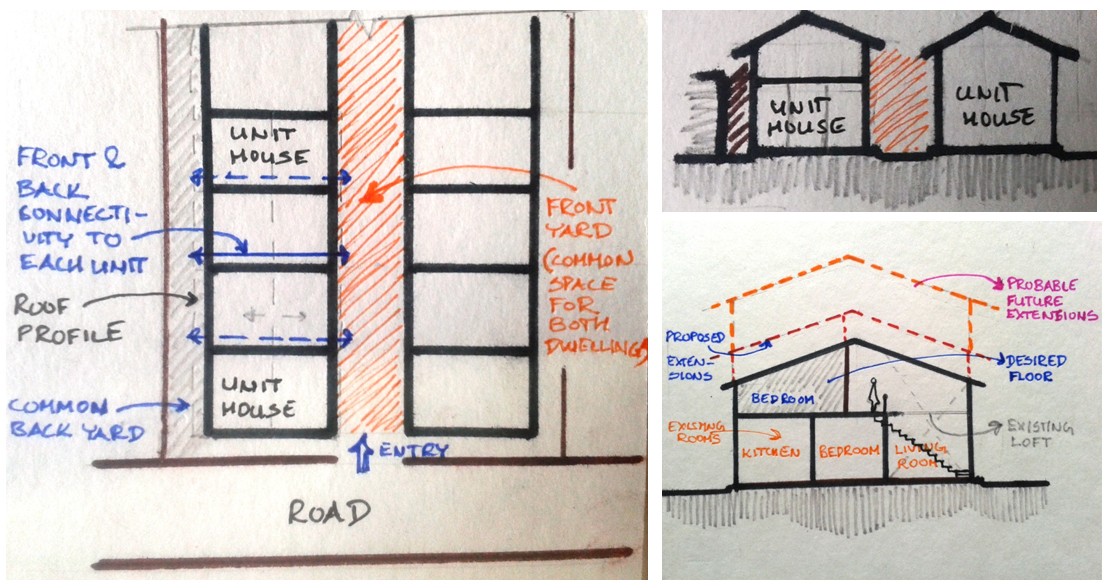 UNIT
HOUSE
FRONT &
BACK
CONNECTI-
VITY TO
EACH UNIT
ROOF
PROFILE
COMMON
BACK YARD
UNIT
HOUSE
FRONT
YARD
(COMMON
SPACE
FOR
BOTH
DWELLING)
ENTRY
ROAD
UNIT
HOUSE
UNIT
HOUSE
PROBABLE
FUTURE
EXTENSIONS
PROPOSED
EXTEN-
SIONS
DESIRED
FLOOR
BEDROOM
EXISTING
ROOMS
KITCHEN
BEDROOM
LIVING
ROOM
EXISTING
LOFT